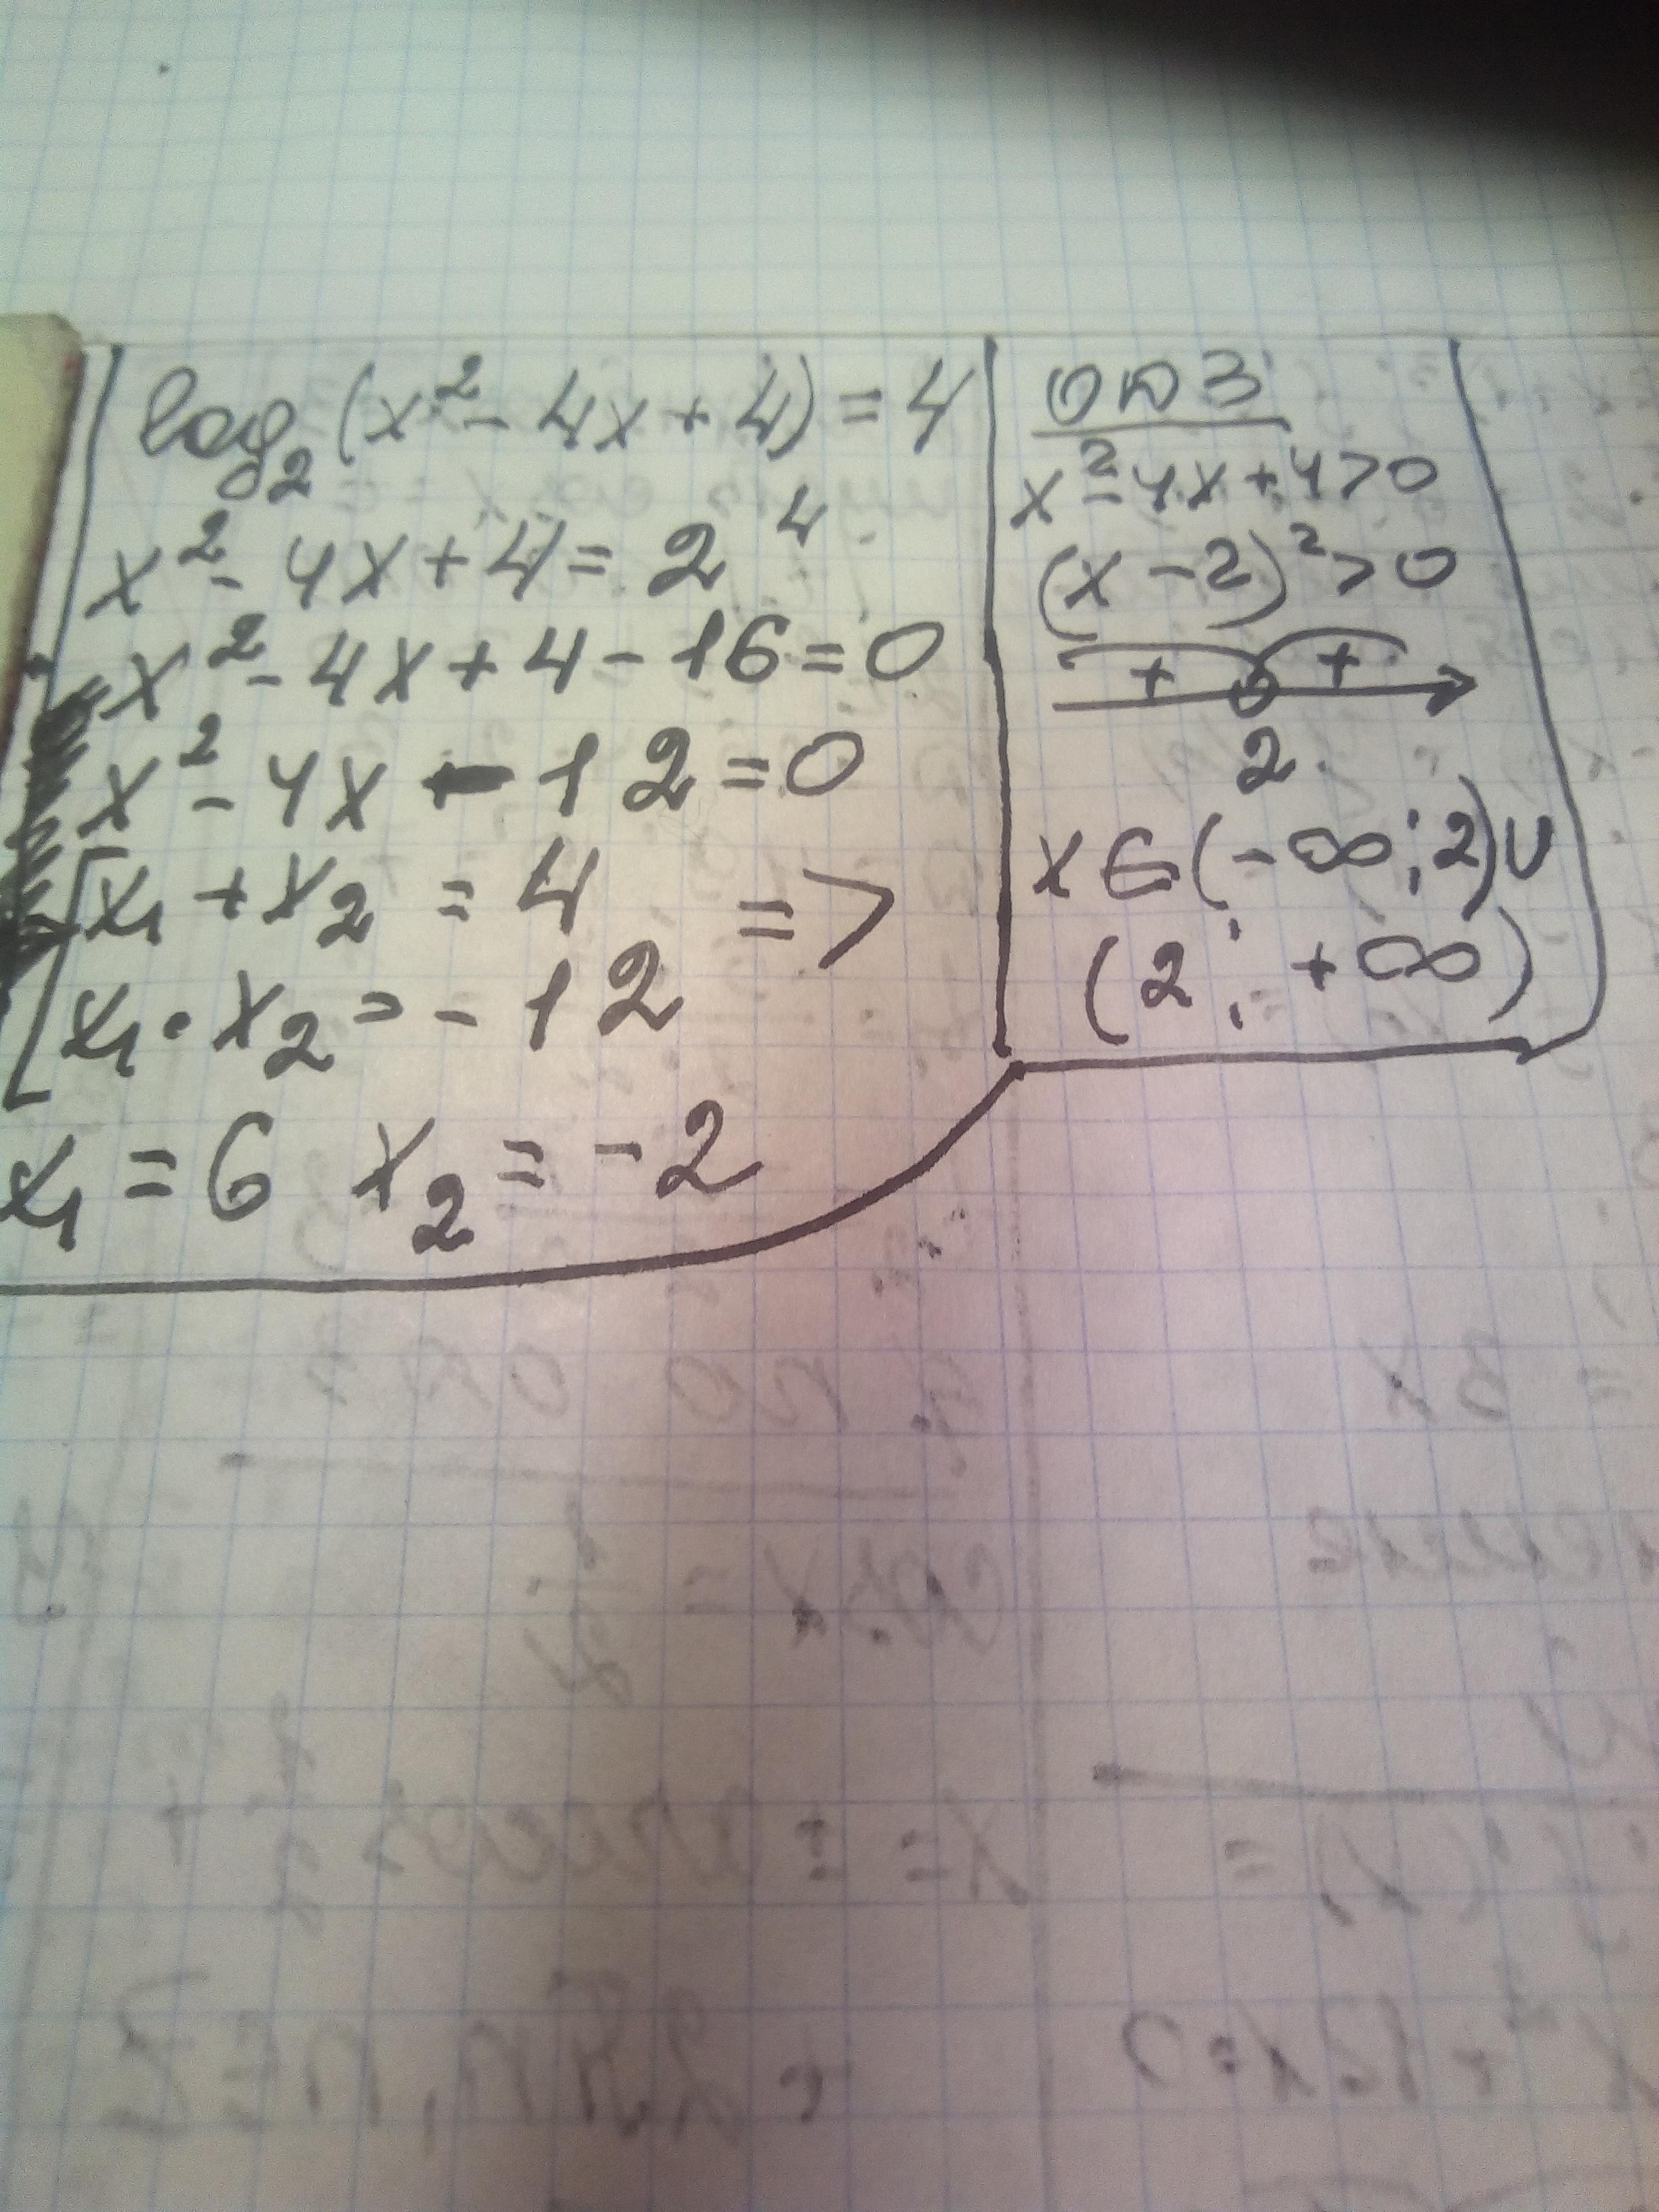 log₂(x² - 4x + 4) = 4
x² - 4x + 4 = 2⁴
x² - 4x + 4 - 16 = 0
x² - 4x - 12 = 0
[x₁ + x₂ = 4 =>
[x₁ · x₂ = -12
x₁ = 6 x₂ = -2
ОДЗ
x² - 4x + 4 > 0
(x - 2)² > 0
+ +
2
x ∈ (-∞; 2) ∪
(2; +∞)